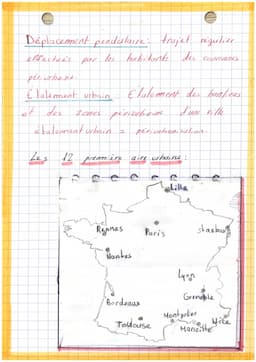 Déplacement pendulaire : trajet régulier
effectués par les habitants des couronnes
périurbaine
Étalement urbain : Étalement des banlieues
et des zones périurbaines d'une ville
étalement urbain = périurbanisation.
Les 12 première aire urbaine :
Lille
Rennes
Paris
Strasbourg
Nantes
Lyon
Bordeaux
Grenoble
Montpelier
Toulouse
Nice
Marseille